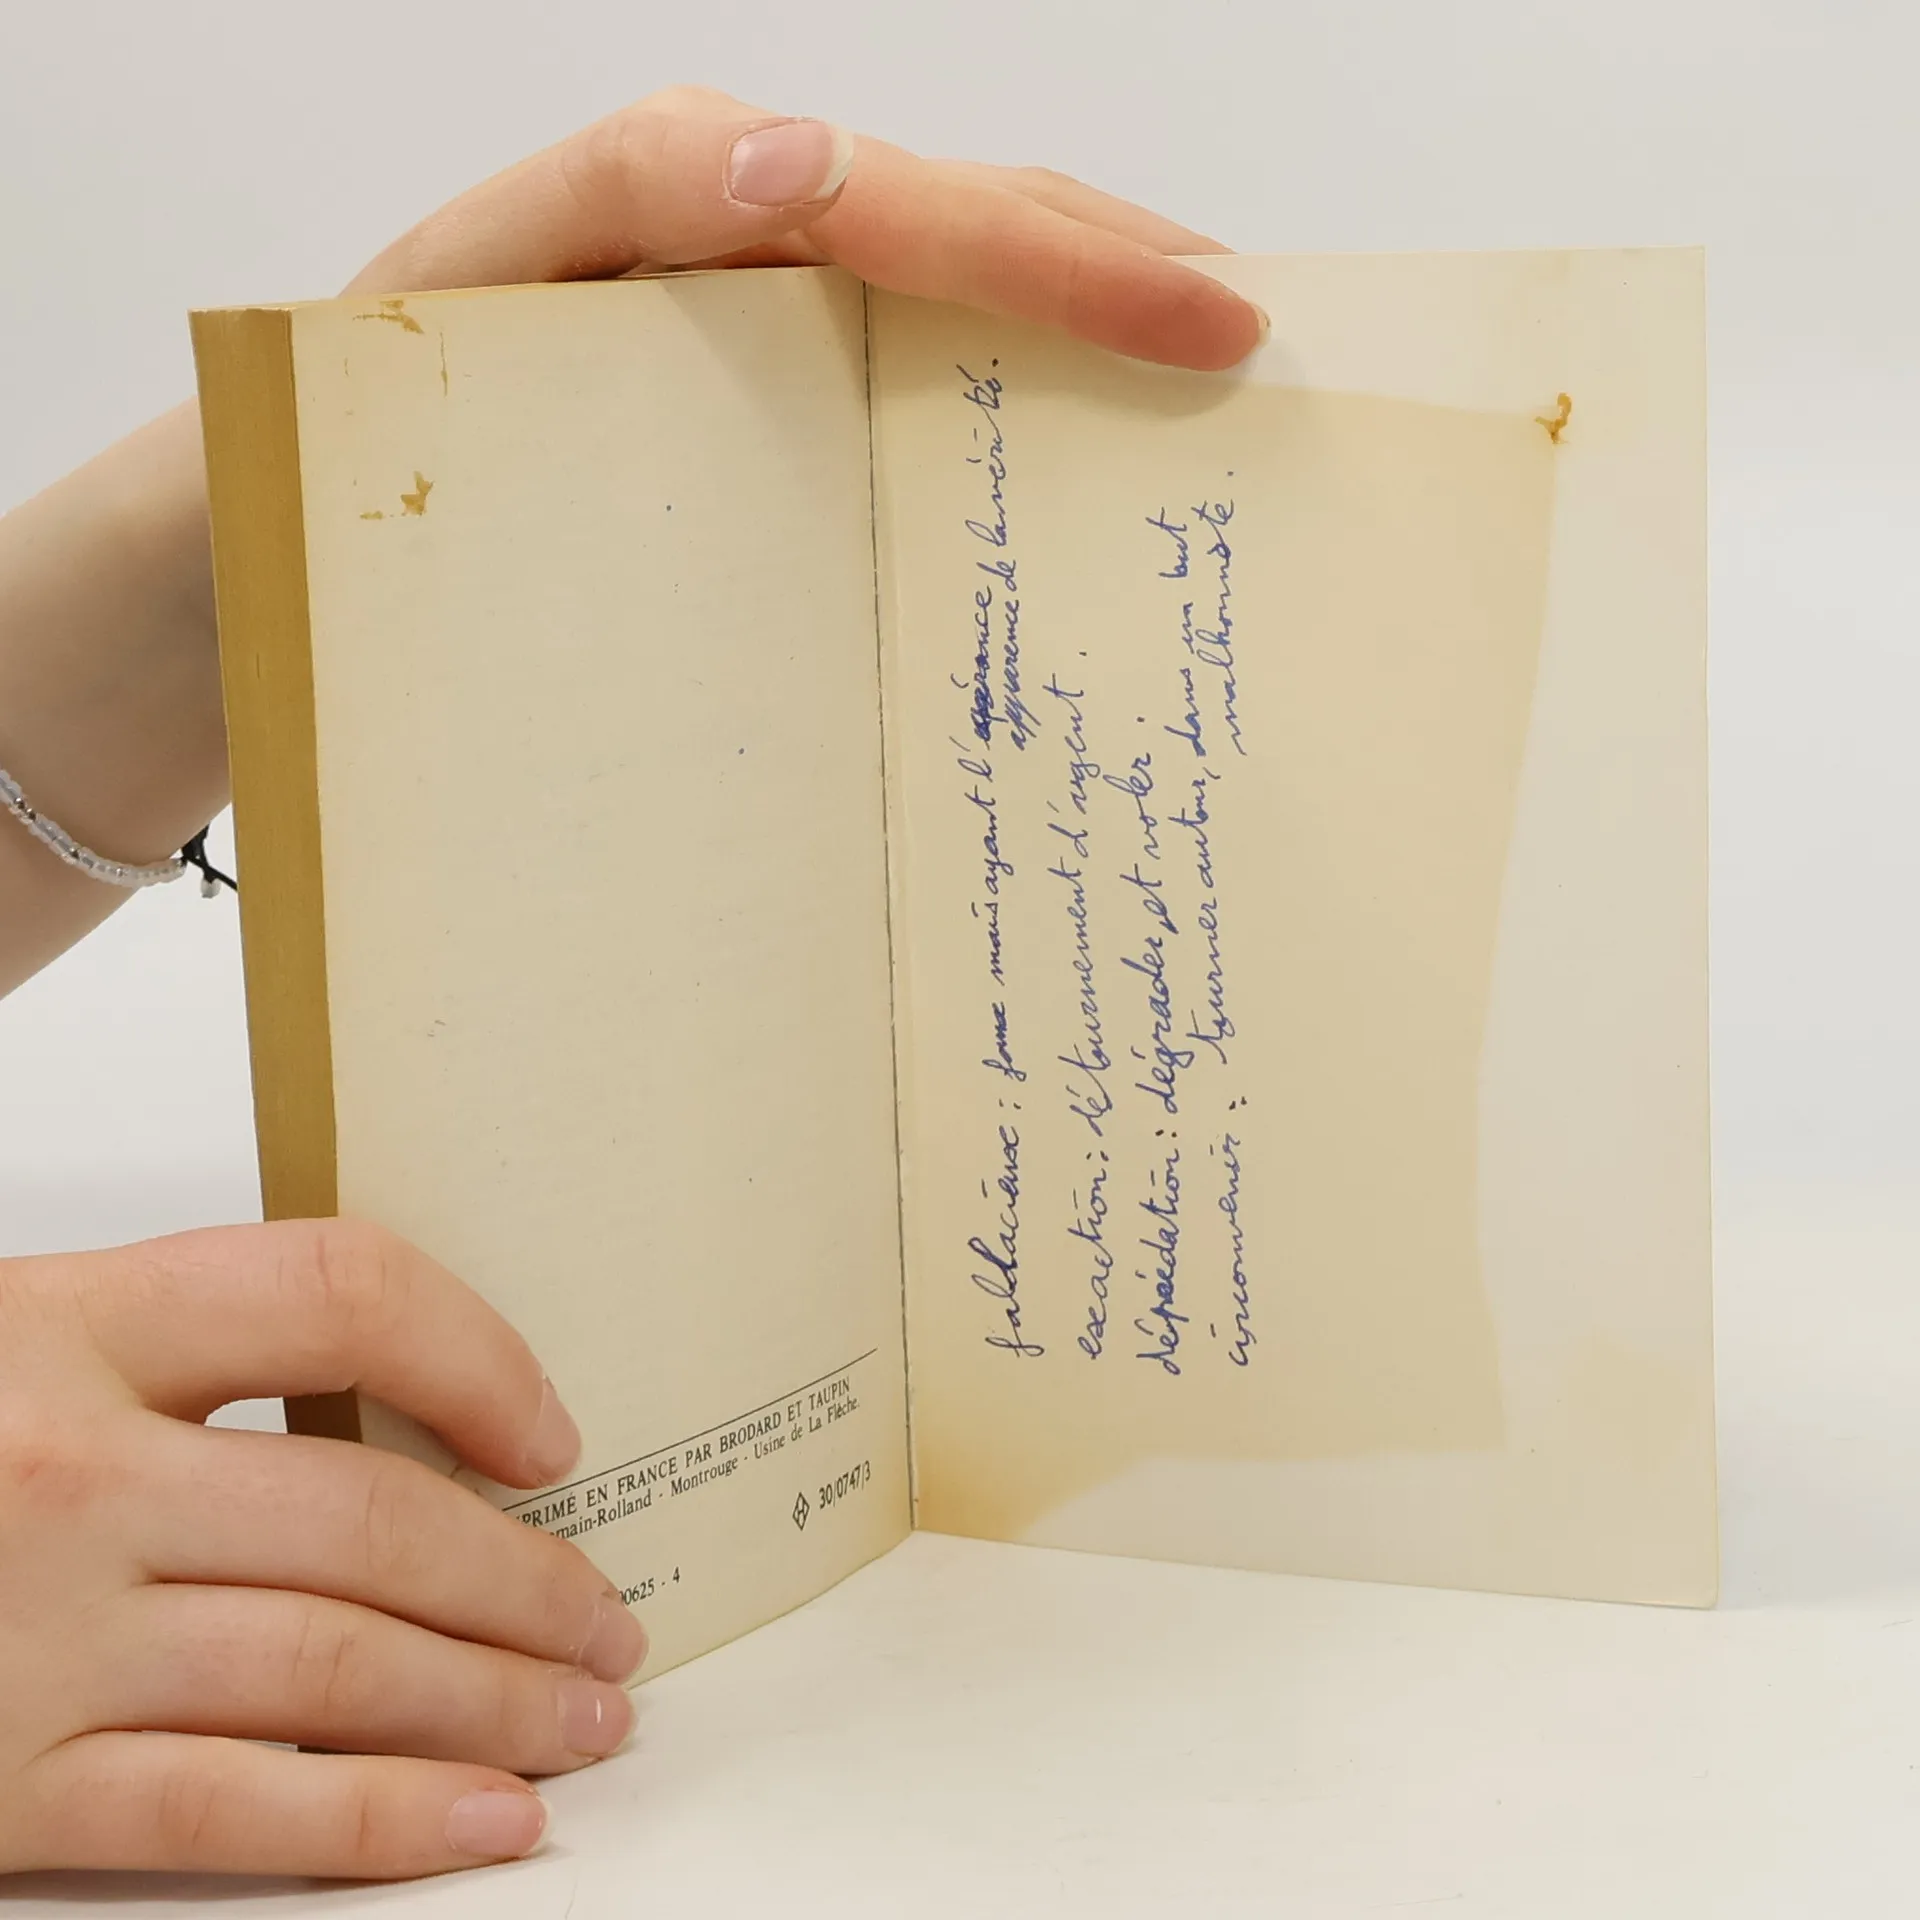 IMPRIMÉ EN FRANCE PAR BRODARD ET TAUPIN
Romain-Rolland - Montrouge - Usine de La Flèche.
00625 - 4
30/0747/3
fallacieuse : fausse mais ayant l'
apparence de la véri-té.
exaction : détournement d'argent.
déprédation : dégrader, et voler.
circonvenir : turner autour, dans un but
malhonnête.